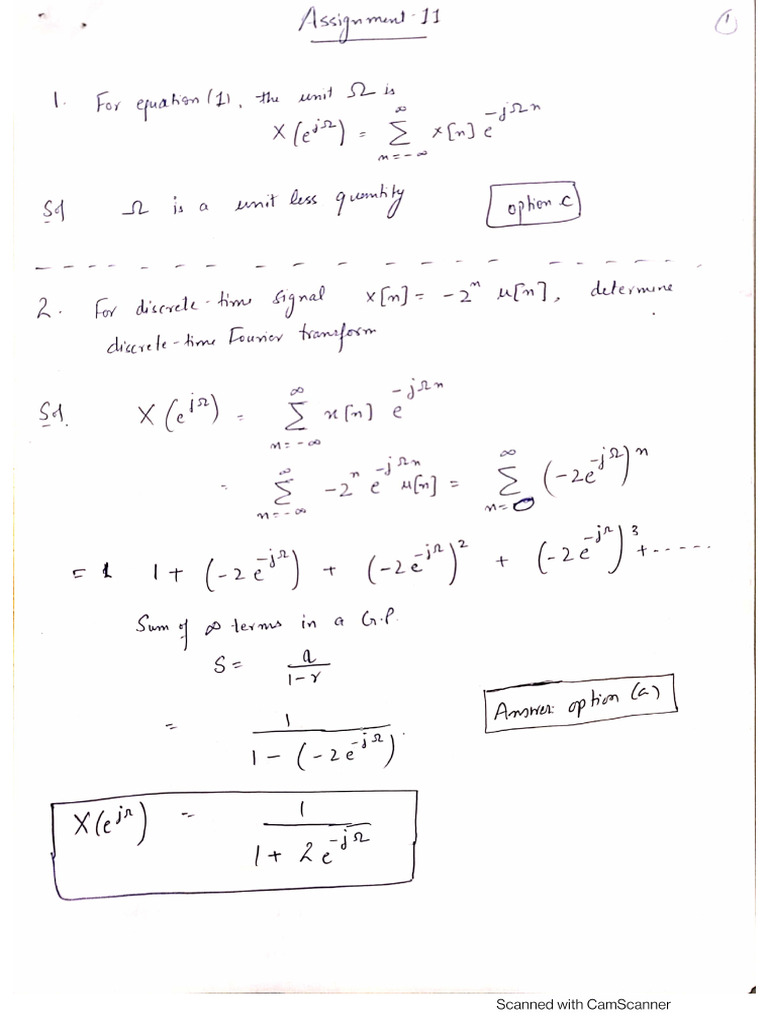 Assignment-11
1
1. For equation (1), the unit Ω is
X(e^{jΩ}) = ∑_{n=-∞}^{∞} x[n] e^{-jΩn}
Sol Ω is a unit less quantity option c
2. For discrete-time signal x[n] = -2^n u[n], determine
discrete-time Fourier transform
Sol. X(e^{jΩ}) = ∑_{n=-∞}^{∞} x[n] e^{-jΩn}
= ∑_{n=-∞}^{∞} -2^n e^{-jΩn} u[n] = ∑_{n=0}^{∞} (-2e^{-jΩ})^n
= 1 + (-2e^{-jΩ}) + (-2e^{-jΩ})^2 + (-2e^{-jΩ})^3 + .....
Sum of ∞ terms in a G.P.
S = a/(1-r)
= 1/(1-(-2e^{-jΩ})).
Answer: option (a)
X(e^{jΩ}) = 1/(1+2e^{-jΩ})
Scanned with CamScanner